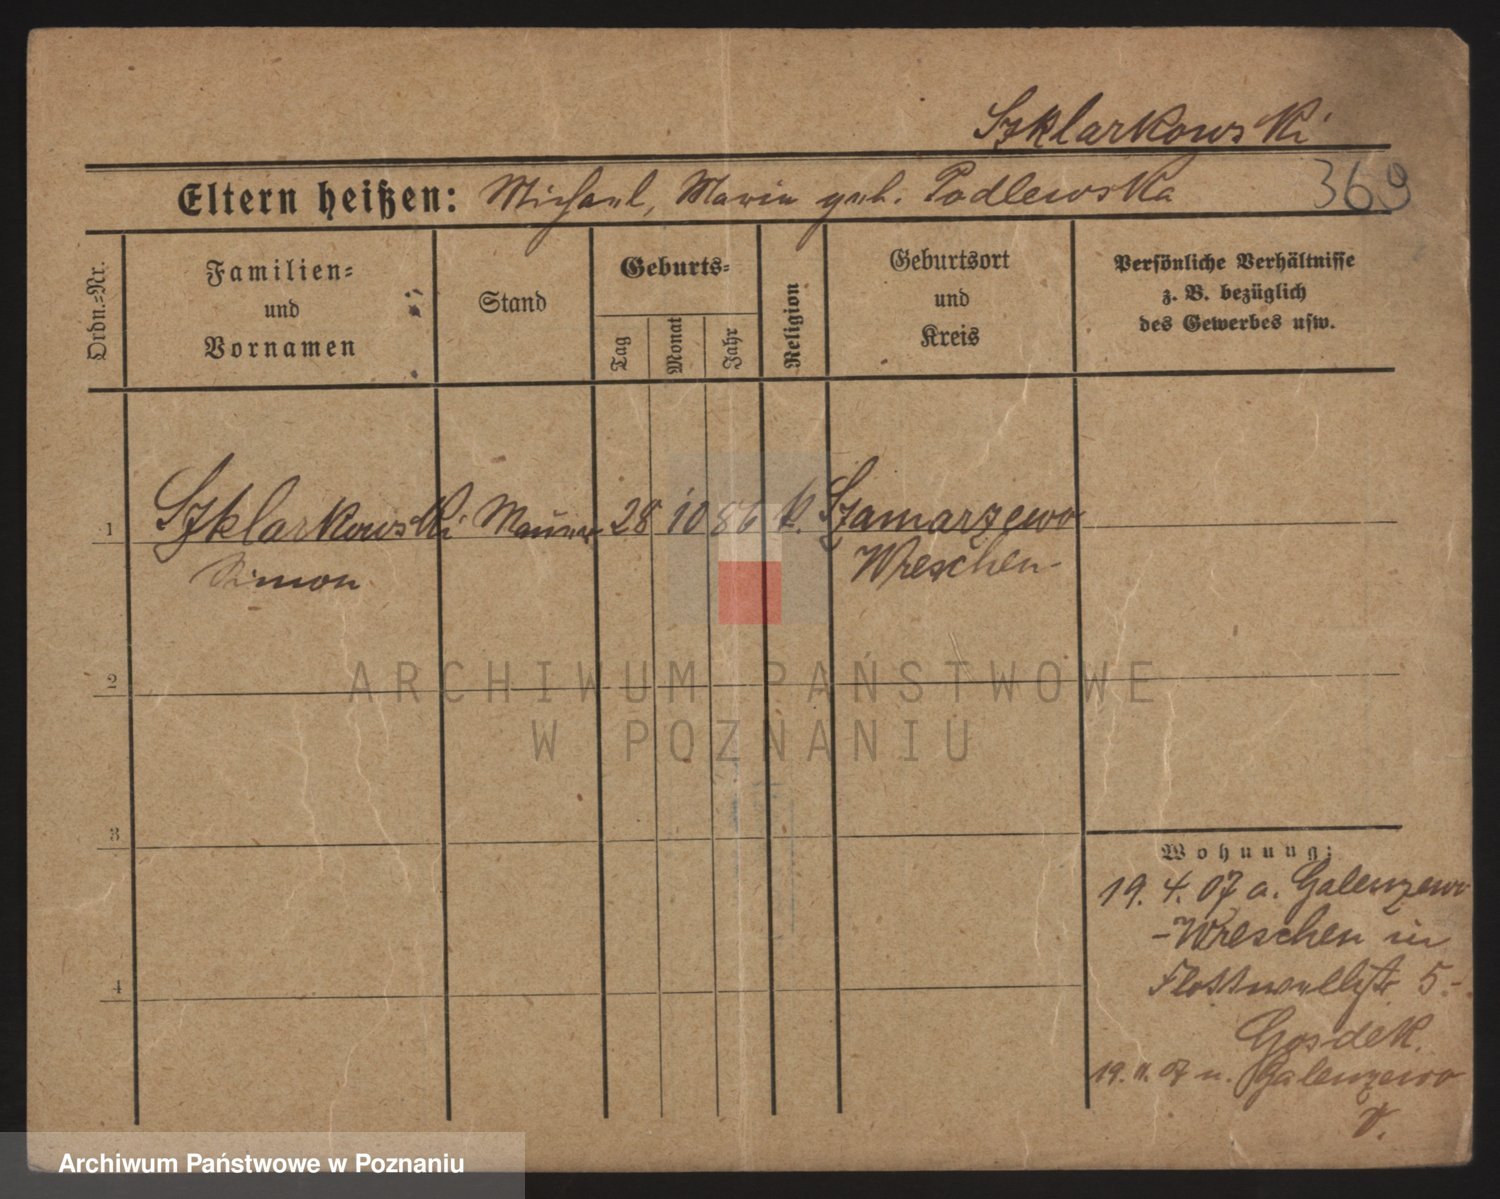 Szklarkowski
369
Eltern heißen: Michael, Maria geb. Podlewska
Ordn.=Nr.
Familien=
und
Vornamen
Stand
Geburts=
Tag
Monat
Jahr
Religion
Geburtsort
und
Kreis
Persönliche Verhältnisse
z. B. bezüglich
des Gewerbes usw.
1 Szklarkowski Maurer 28 10 86 k. Szamarzewo
Simon Wreschen
2
ARCHIWUM PAŃSTWOWE
W POZNANIU
3
Wohnung:
19. 4. 07 a. Galenzewo
-Wreschen in
5.-
4
Gosdek.
19. 11. 07 n. Galenzewo
Archiwum Państwowe w Poznaniu